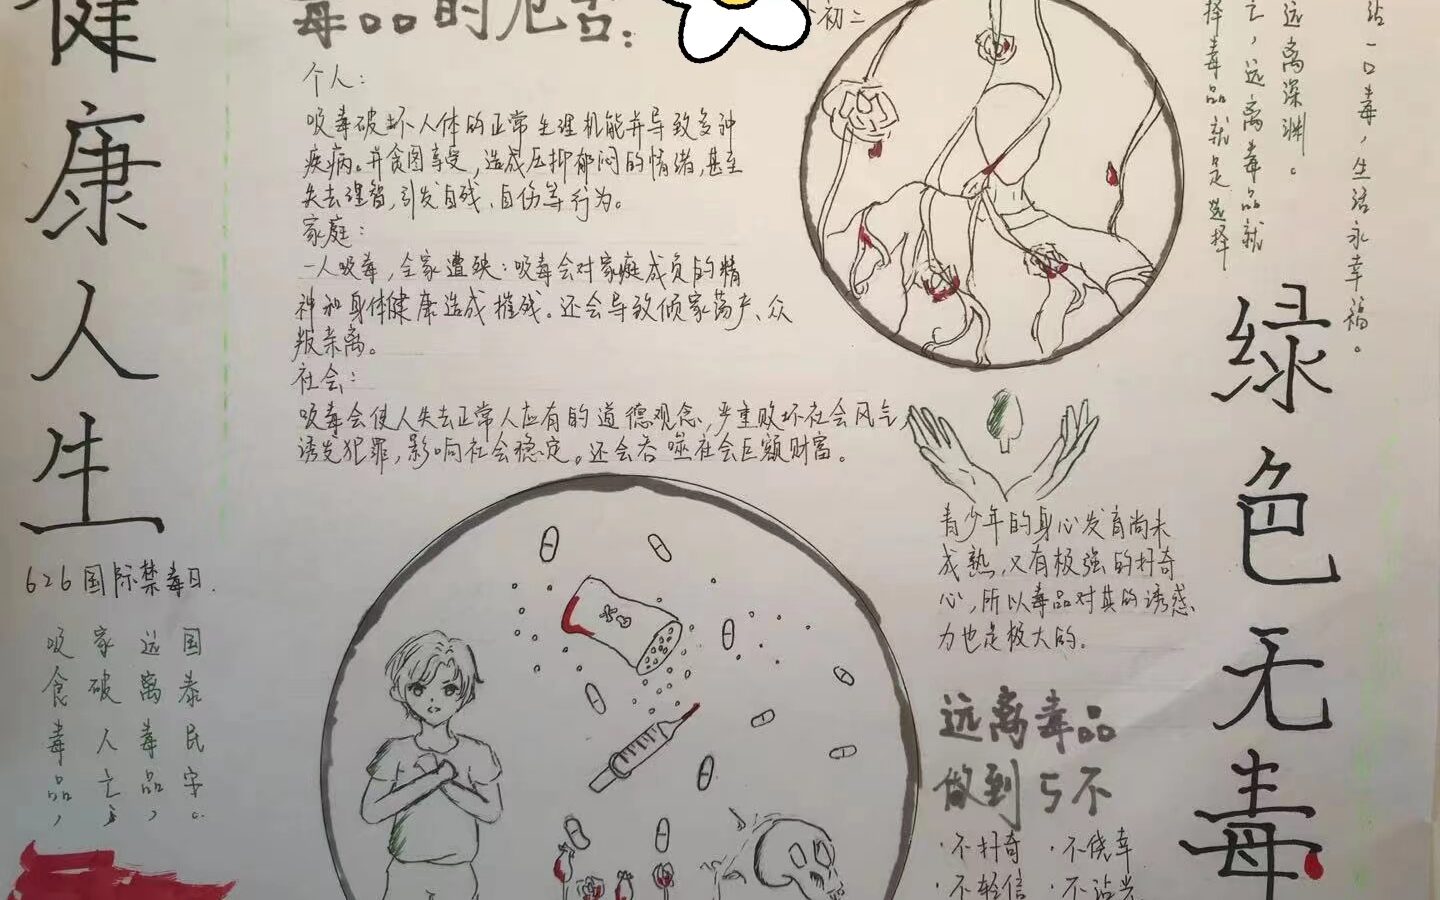 健康人生
626国际禁毒日.
国泰民安。
远离毒品,
家破人亡;
吸食毒品,
毒品的危害:
个人:
吸毒破坏人体的正常生理机能并导致多种
疾病。并贪图享受,造成压抑郁闷的情绪,甚至
失去理智,引发自残、自伤等行为。
家庭:
一人吸毒,全家遭殃:吸毒会对家庭成员的精
神和身体健康造成摧残。还会导致倾家荡产、众
叛亲离。
社会:
吸毒会使人失去正常人应有的道德观念,严重败坏社会风气,
诱发犯罪,影响社会稳定。还会吞噬社会巨额财富。
初二
沾一口毒,生活永幸福。
远离深渊。
亡,远离毒品就
择毒品就是选择
青少年的身心发育尚未
成熟,又有极强的好奇
心,所以毒品对其的诱惑
力也是极大的。
远离毒品
做到5不
·不好奇 ·不侥幸
·不轻信 ·不沾
绿色无毒